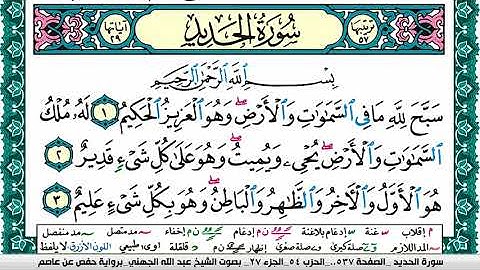 ترتيبها ٥٧ سُورَةُ الحَدِيدِ آياتها ٢٩
بِسْمِ اللَّهِ الرَّحْمَٰنِ الرَّحِيمِ
سَبَّحَ لِلَّهِ مَا فِي السَّمَٰوَٰتِ وَالْأَرْضِ ۖ وَهُوَ الْعَزِيزُ الْحَكِيمُ ١ لَهُ مُلْكُ
السَّمَٰوَٰتِ وَالْأَرْضِ ۖ يُحْيِي وَيُمِيتُ ۖ وَهُوَ عَلَىٰ كُلِّ شَيْءٍ قَدِيرٌ ٢
هُوَ الْأَوَّلُ وَالْآخِرُ وَالظَّاهِرُ وَالْبَاطِنُ ۖ وَهُوَ بِكُلِّ شَيْءٍ عَلِيمٌ ٣
م إقلاب غنة إدغام بلاغنة ن م إدغام ن م إخفاء مد متصل مد منفصل
المد اللازم صلة كبرى صلة صغرى إظهار ن م قلقلة اوى طبيعي اللون الأزرق لا يلفظ
سورة الحديد ..الصفحة ٥٣٧.. الحزب ٥٤ ..الجزء ٢٧ ..بصوت الشيخ عبد الله الجهني.. برواية حفص عن عاصم